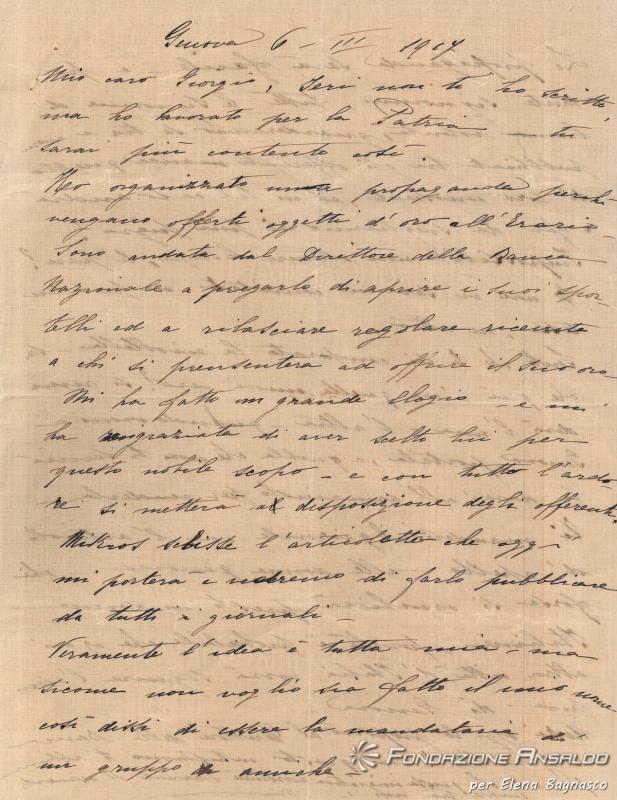 Genova 6 - III 1917
Mio caro Giorgio, Ieri non ti ho scritto
ma ho lavorato per la Patria - tu
sarai più contento così.
Ho organizzato una propaganda perchè
vengano offerti oggetti d'oro all'Erario -
Sono andata dal Direttore della Banca
Nazionale a pregarlo di aprire i suoi spor-
telli ed a rilasciare regolare ricevuta
a chi si prensenterà ad offrire il suo oro -
Mi ha fatto un grande Elogio - e mi
ha ringraziata di aver scelto lui per
questo nobile scopo - e con tutto l'ardo-
re si metterà a disposizione degli offerenti.
Mikros scrisse l'articoletto che oggi
mi porterà e vedremo di farlo pubblicare
da tutti i giornali -
Veramente l'idea è tutta mia - ma
sicome non voglio sia fatto il mio nome
così dissi di essere la mandataria di
un gruppo di amiche -
Fondazione Ansaldo
per Elena Bagnasco